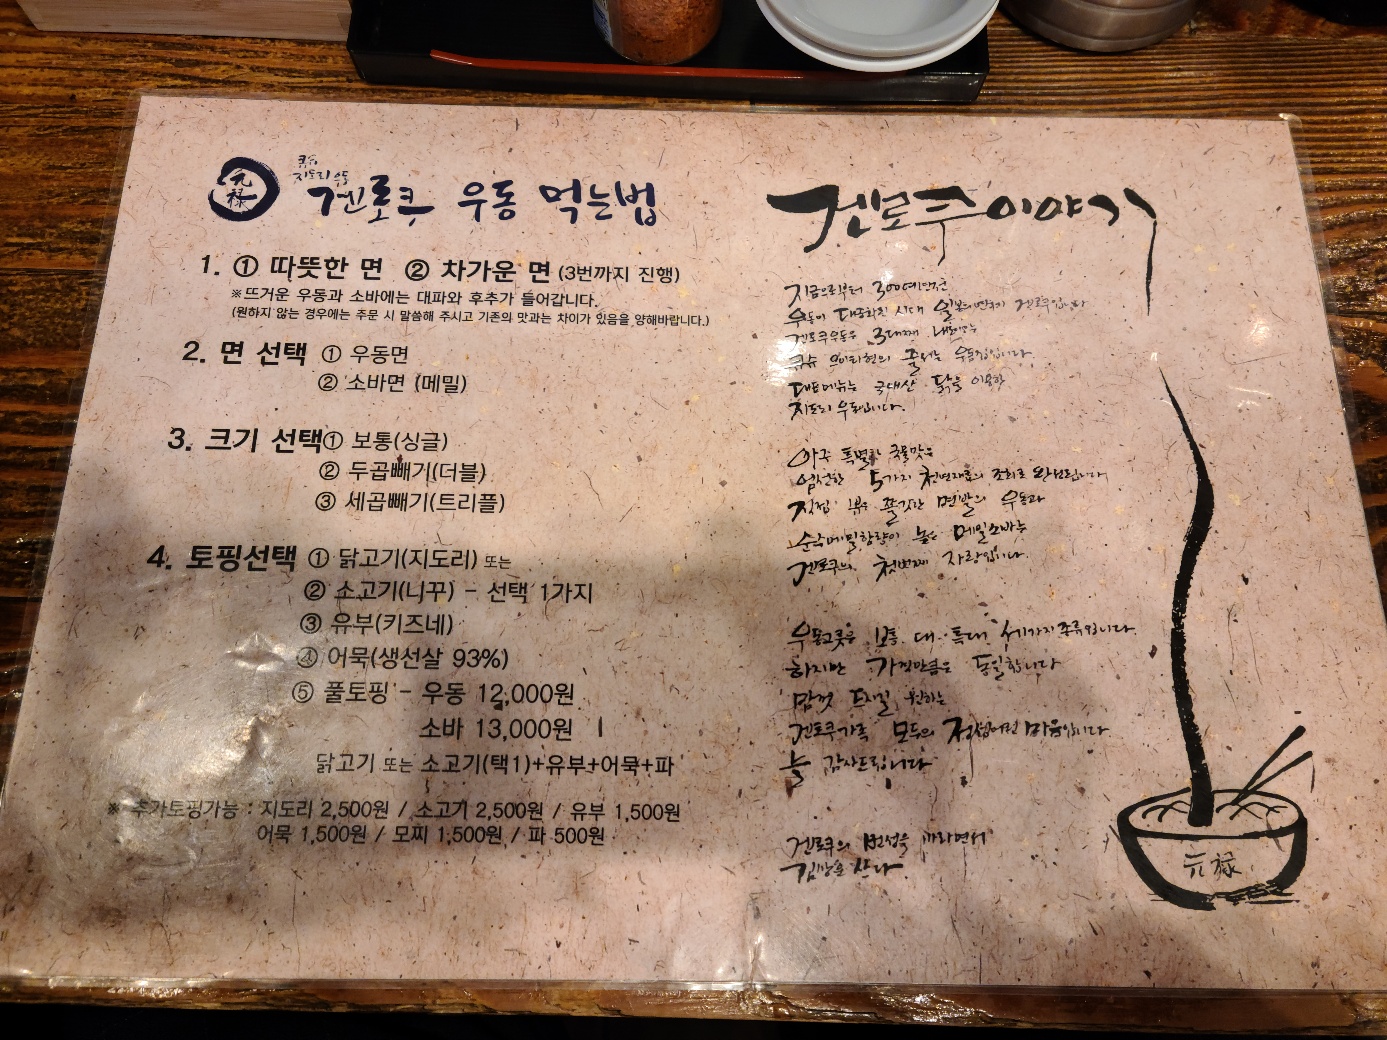 元
禄
큐슈
지도리우동
겐로쿠 우동 먹는법
1. ① 따뜻한 면 ② 차가운 면 (3번까지 진행)
※뜨거운 우동과 소바에는 대파와 후추가 들어갑니다.
(원하지 않는 경우에는 주문 시 말씀해 주시고 기존의 맛과는 차이가 있음을 양해바랍니다.)
2. 면 선택 ① 우동면
② 소바면 (메밀)
3. 크기 선택 ① 보통(싱글)
② 두곱빼기(더블)
③ 세곱빼기(트리플)
4. 토핑선택 ① 닭고기(지도리) 또는
② 소고기(니꾸) - 선택 1가지
③ 유부(키즈네)
④ 어묵(생선살 93%)
⑤ 풀토핑 - 우동 12,000원
소바 13,000원
닭고기 또는 소고기(택1)+유부+어묵+파
※ 추가토핑가능 : 지도리 2,500원 / 소고기 2,500원 / 유부 1,500원
어묵 1,500원 / 모찌 1,500원 / 파 500원
겐로쿠이야기
지금으로부터 300여년전
우동이 대중화된 시대 일본의 연호가 겐로쿠입니다
겐로쿠우동은 3대째 내려오는
큐슈 의 줄서는 우동집입니다.
대표메뉴는 국내산 닭을 이용한
지도리 우동입니다.
아주 특별한 국물맛은
엄선한 5가지 천연재료의 조화로 완성됩니다.
직접 뽑은 쫄깃한 면발의 우동과
순수메밀함량이 높은 메밀소바는
겐로쿠의 첫번째 자랑입니다.
우동그릇은 보통, 대, 특대 세가지 종류입니다.
하지만 가격만큼은 동일합니다
맘껏 드시길 원하는
겐로쿠가족 모두의 정성어린 마음입니다
늘 감사드립니다
겐로쿠의 번성을 바라면서
쓰다
元禄